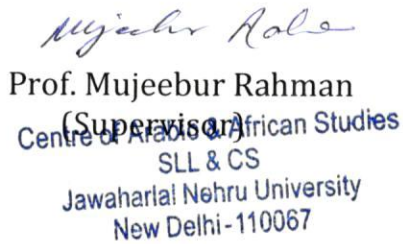 Mujeebur Rahman
Prof. Mujeebur Rahman
(Supervisor)
Centre of Arabic & African Studies
SLL & CS
Jawaharlal Nehru University
New Delhi-110067